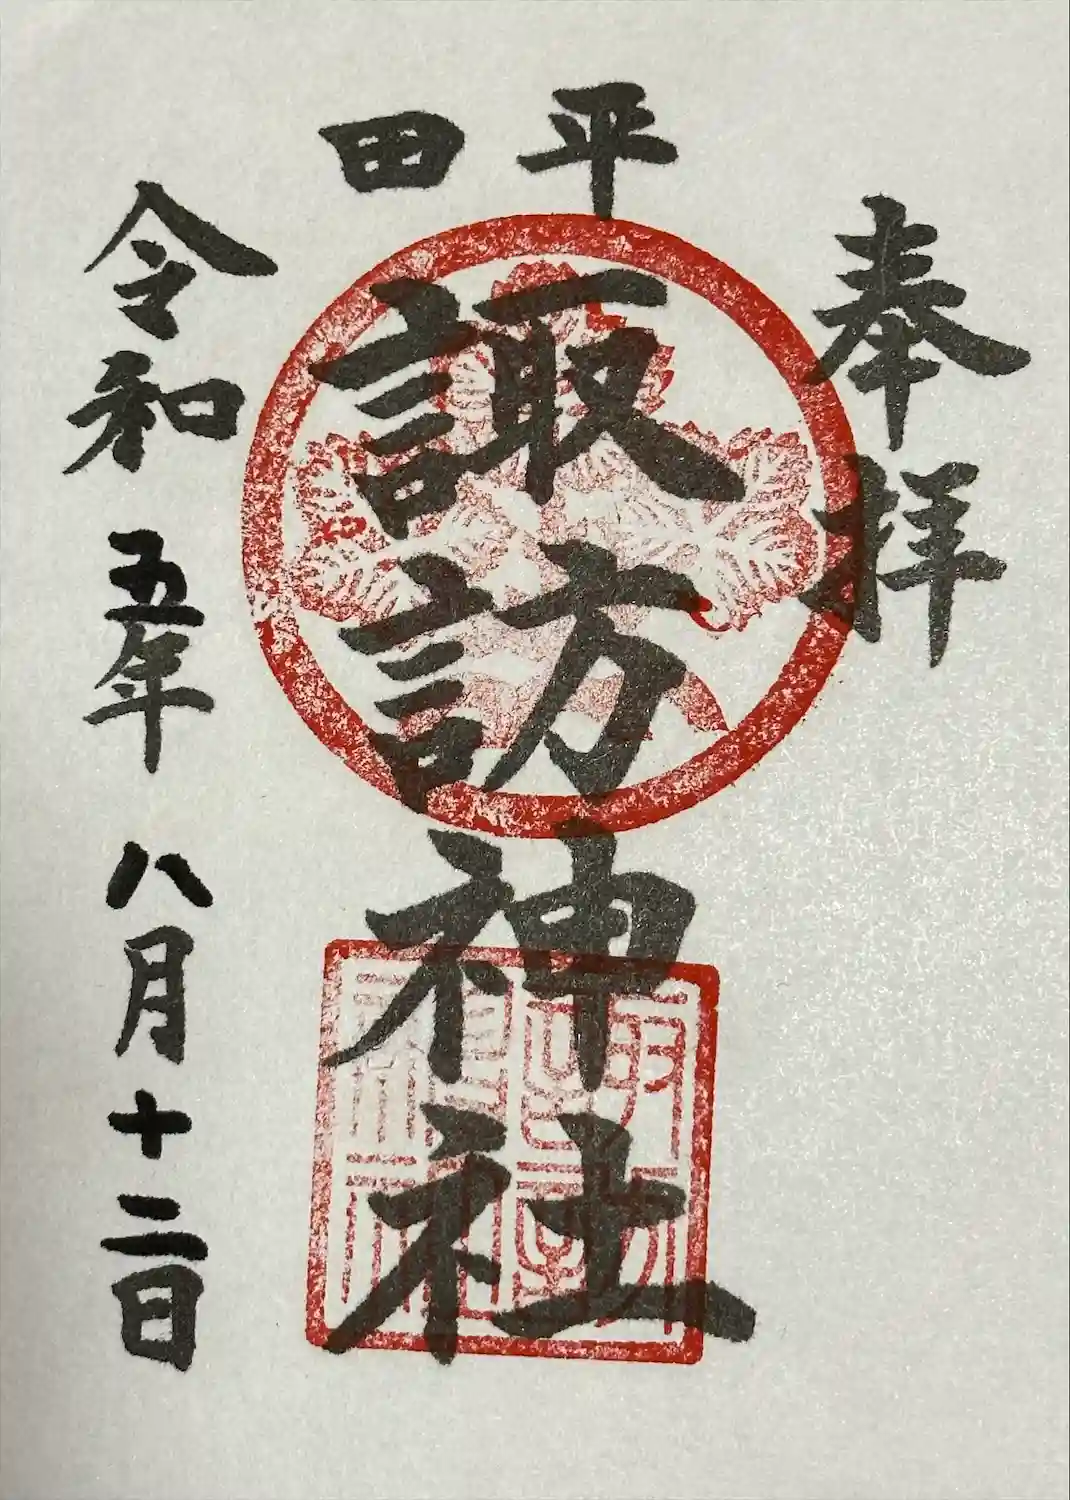 奉拝
平田
諏訪神社
諏訪神社
令和五年八月十二日